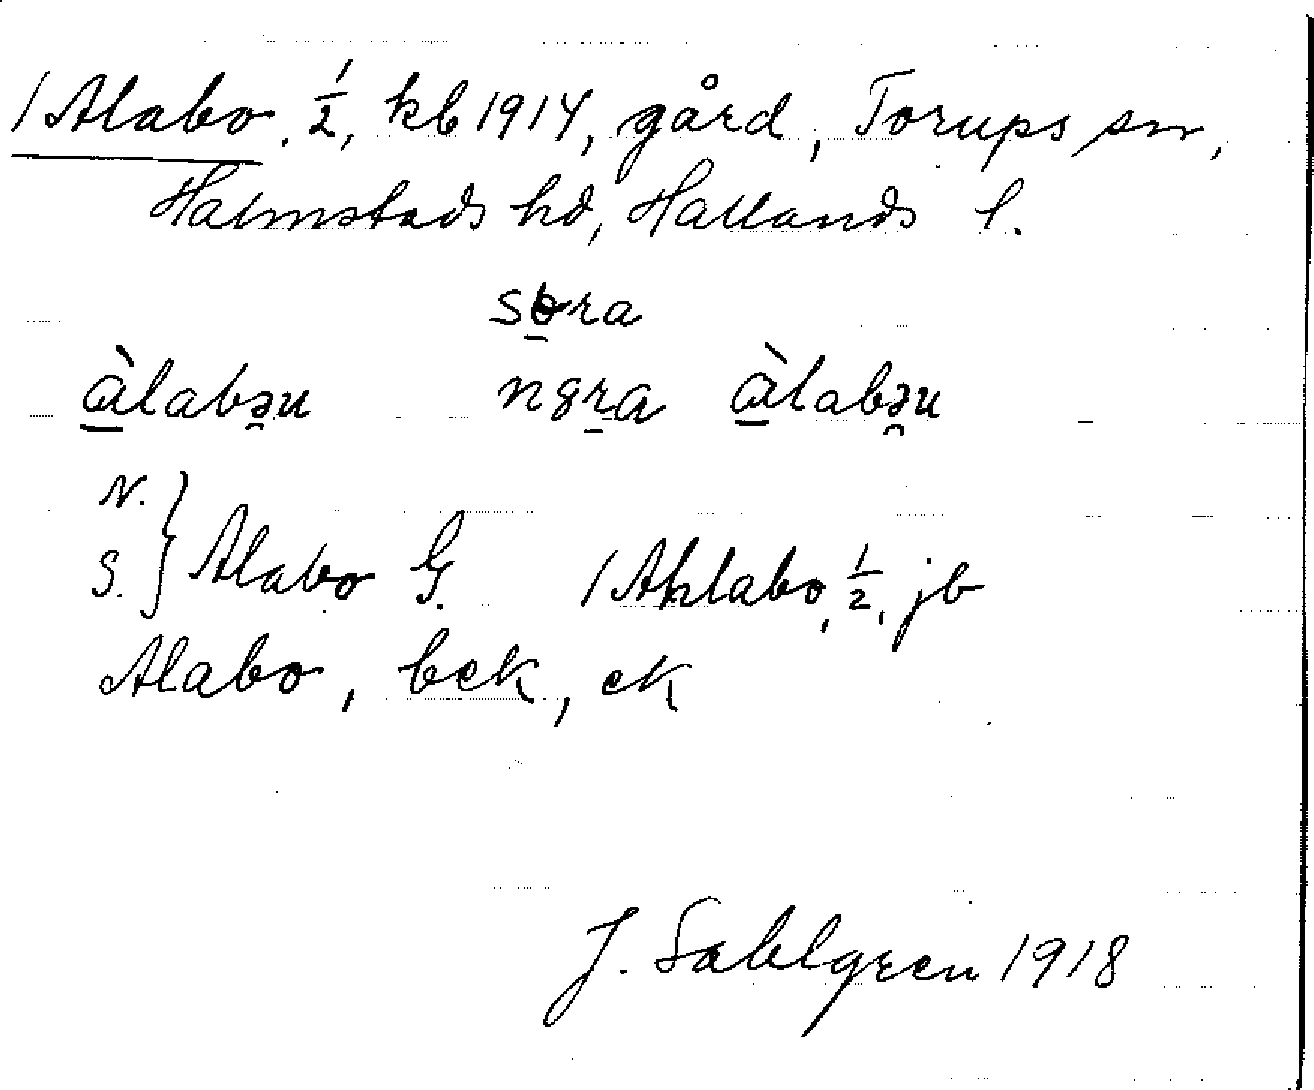 1 Alabo, 1/2, kb 1914, gård, Torups sn,
Halmstads hd, Hallands l.
sora
àlabəu n8ra àlabəu
N.
S. } Alabo G. 1 Ahlabo, 1/2, jb
Alabo, bck, ek
J. Sahlgren 1918